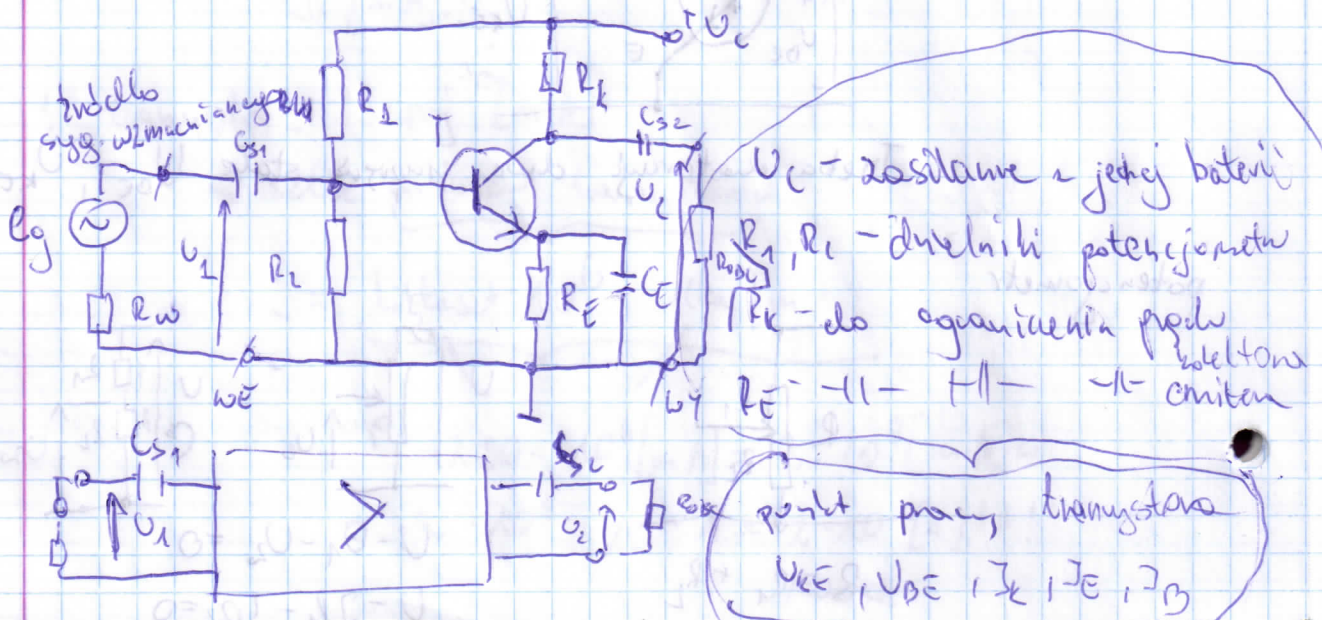 U_C
R_k
R_1
źródło
syg. wzmacnianego
C_S1
T
C_S2
e_g
U_1
R_2
R_E
C_E
U_2
R_obc
R_w
WE
WY
U_C - zasilanie z jednej baterii
R_1, R_2 - dzielniki potencjometru
R_k - do ograniczenia prądu kolektora
R_E - -||- -||- -||- emitera
C_S1
U_1
>
U_2
punkt pracy tranzystora
U_KE, U_BE, I_K, I_E, I_B